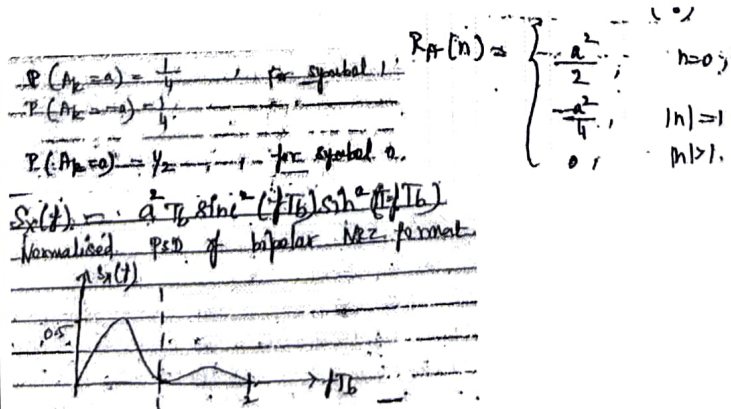 P(A_k = a) = 1/4 , for symbol 1.
P(A_k = -a) = 1/4.
P(A_k = 0) = 1/2 , for symbol 0.
R_A(n) = { a²/2 ; n=0;
-a²/4 , |n|=1
0 , |n|>1.
S_x(f) = a² T_b sinc²(f T_b) sin²(π f T_b)
Normalised PSD of bipolar NRZ format
S_x(f)
0.5
1 2 f T_b